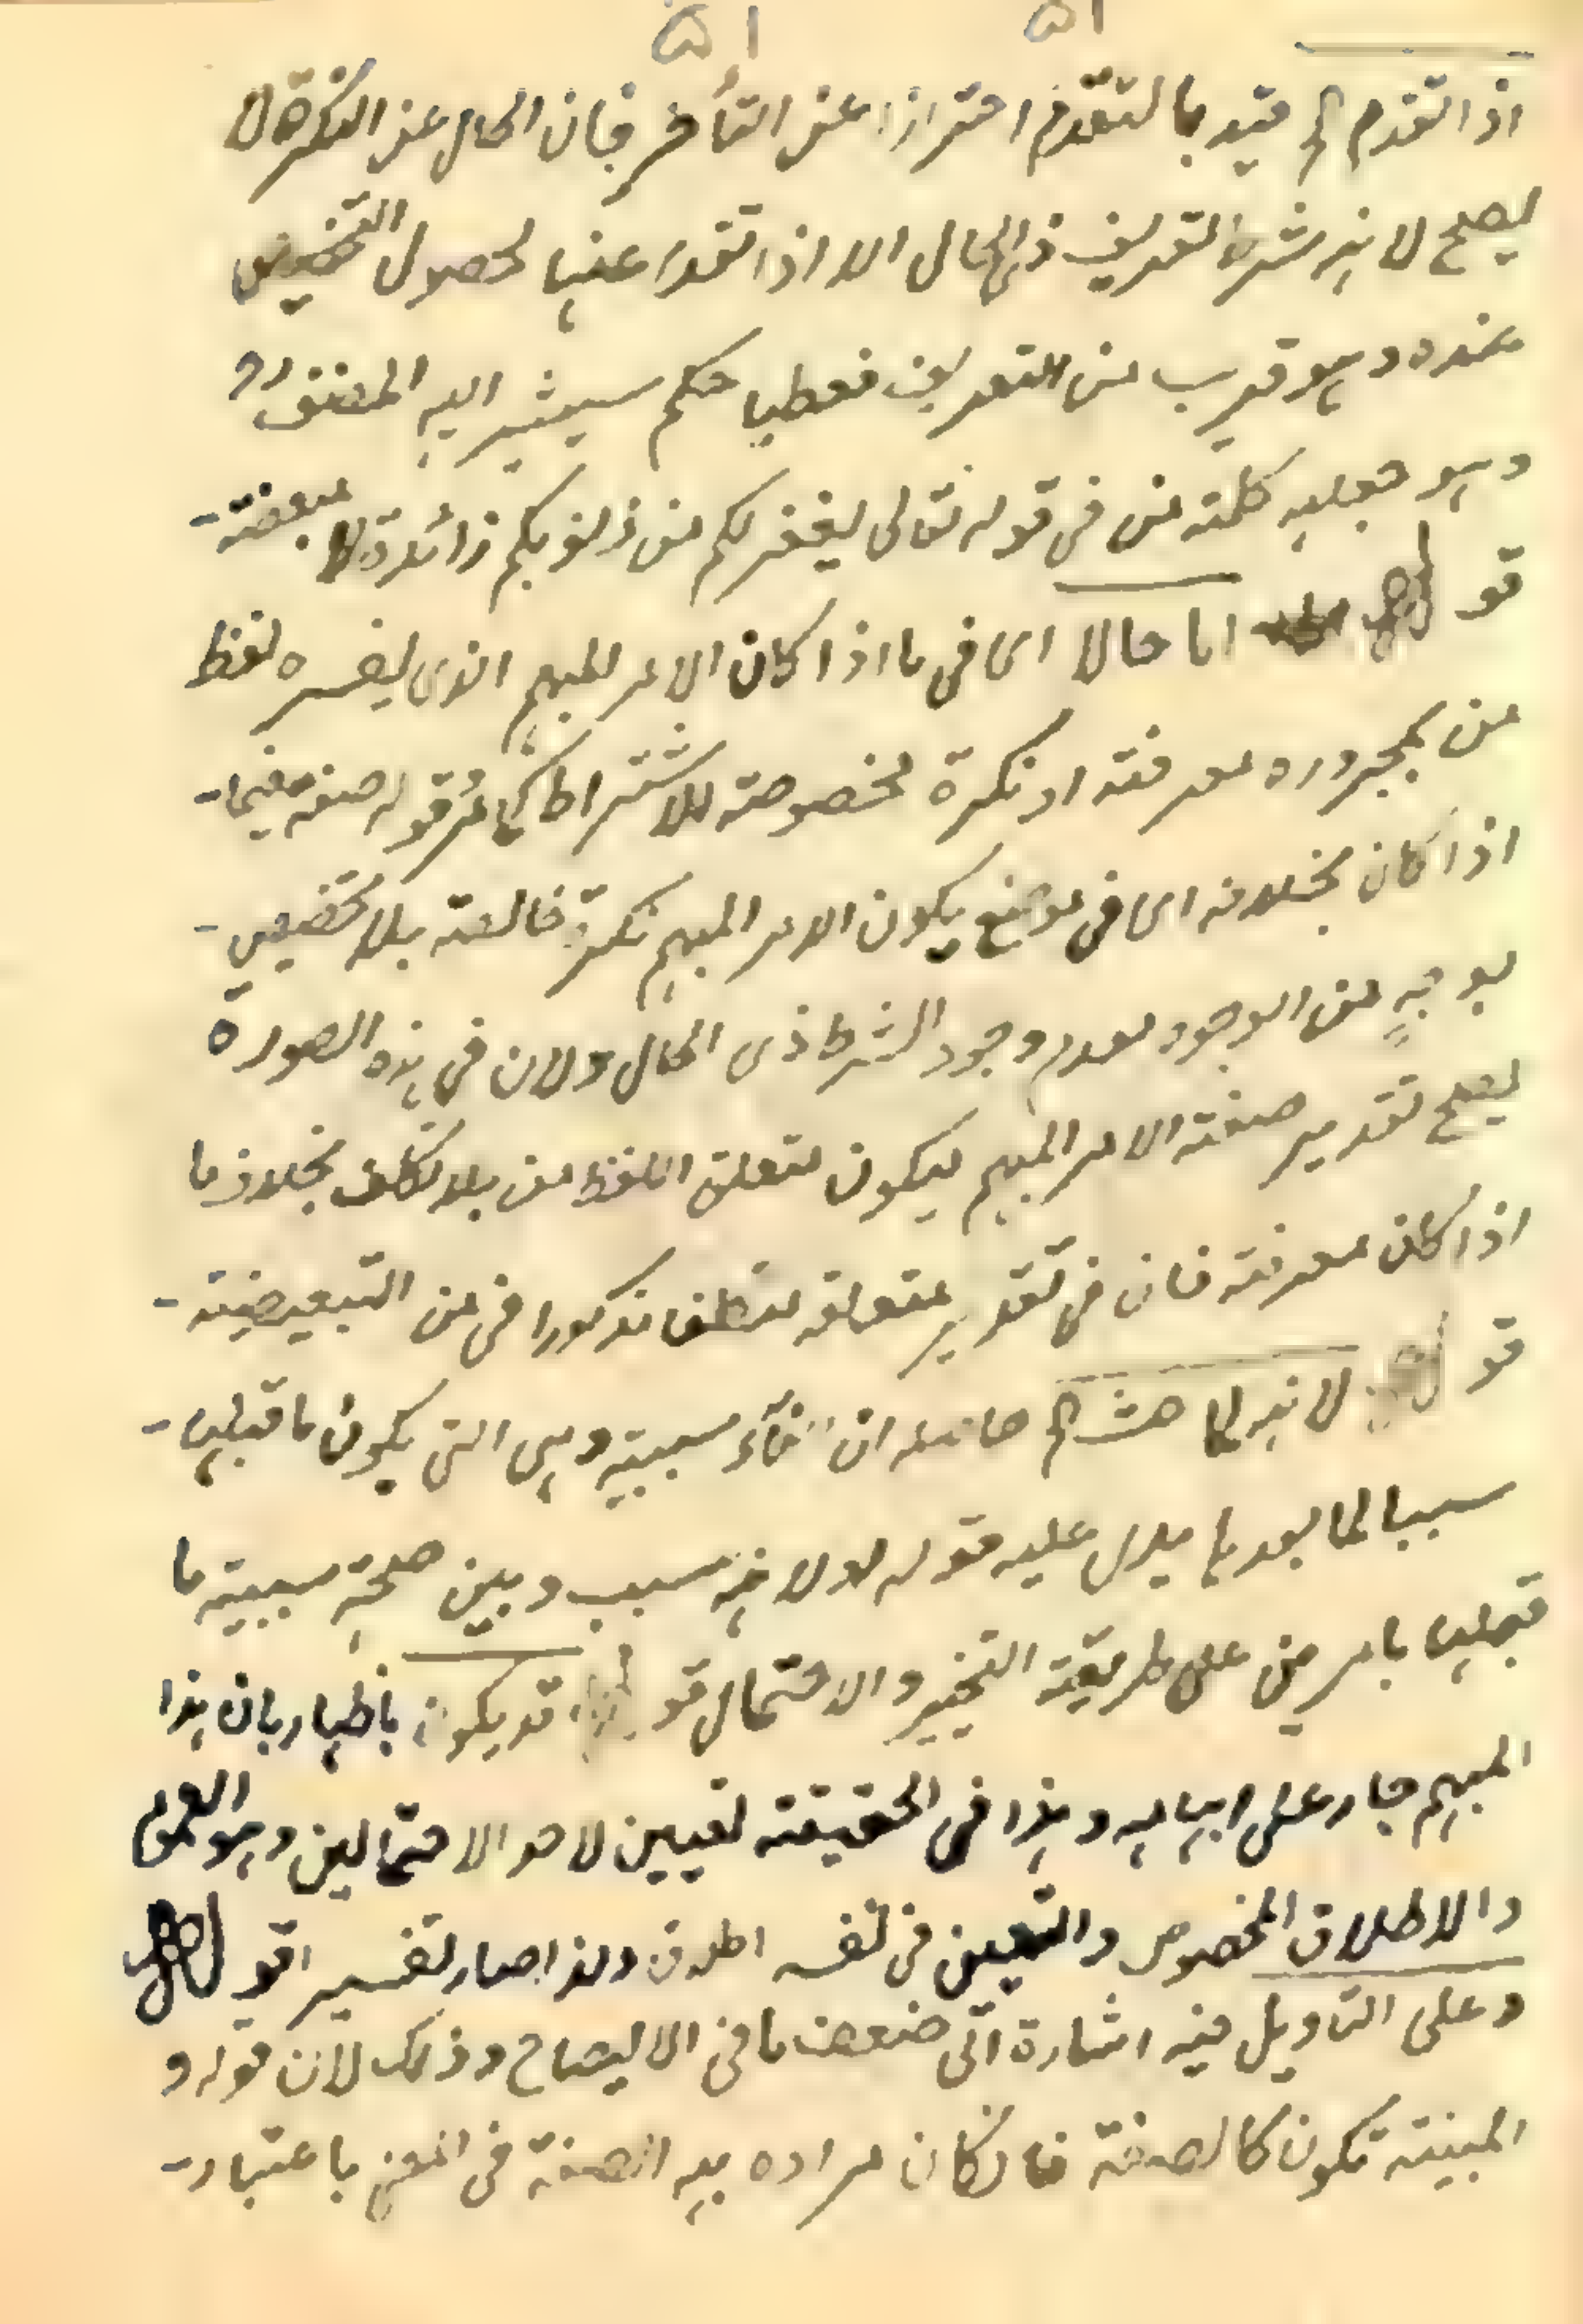 ۵۱ ۵۱
اذا تقدم الخ قيد بالتقدم احترازا عن التأخر فان الحال عن النكرة لا
يصلح لانه شرط تعريف ذى الحال الا اذا تقدم عنها لحصول التخصيص
عنده وهو قريب من التعريف فعطيا حكم سيشير اليه المصنف رح
وهو جعله كلمة من فى قوله تعالى ليغفر لكم من ذنوبكم زائدة لا مبعضة
قوله اما حالا اى فى ما اذا كان الامر المبهم الذى يفسره لفظ
من بمجروره معرفة او نكرة مخصوصة للاشتراط كما مر قوله صفة فيما
اذا كان بخلافه اى فى موضع يكون الامر المبهم نكرة خالصة بلا تخصيص
بوجهٍ من الوجوه لعدم وجود الشرط ذى الحال ولان فى هذه الصورة
يصلح تقدير صفة الامر المبهم ليكون متعلق اللفظ من بلا تكلف بخلاف ما
اذا كان معرفة فان فى تقدير متعلقه تكلفا مذكورا فى من التبعيضية
قوله لانه لما حث الخ حاصله ان الفاء سببية وهى التى يكون ما قبلها
سببا لما بعدها يدل عليه قوله اولا فهو سبب وبين صلحة سببية ما
قبلها بامرين على طريقة التخيير والاحتمال قوله قد يكون باظهار بان هذا
المبهم جار على ابهامه وهذا فى الحقيقة تعيين لاحد الاحتمالين وهو العموم
والاطلاق المخصوص والتعين فى نفسه اطلاق ولذا صار تفسير اقوله
وعلى التاويل فيه اشارة الى ضعف ما فى الايضاح وذلك لان قوله و
المبينة تكون كالصفة فان كان مراده به الصفة فى المعنى باعتبار